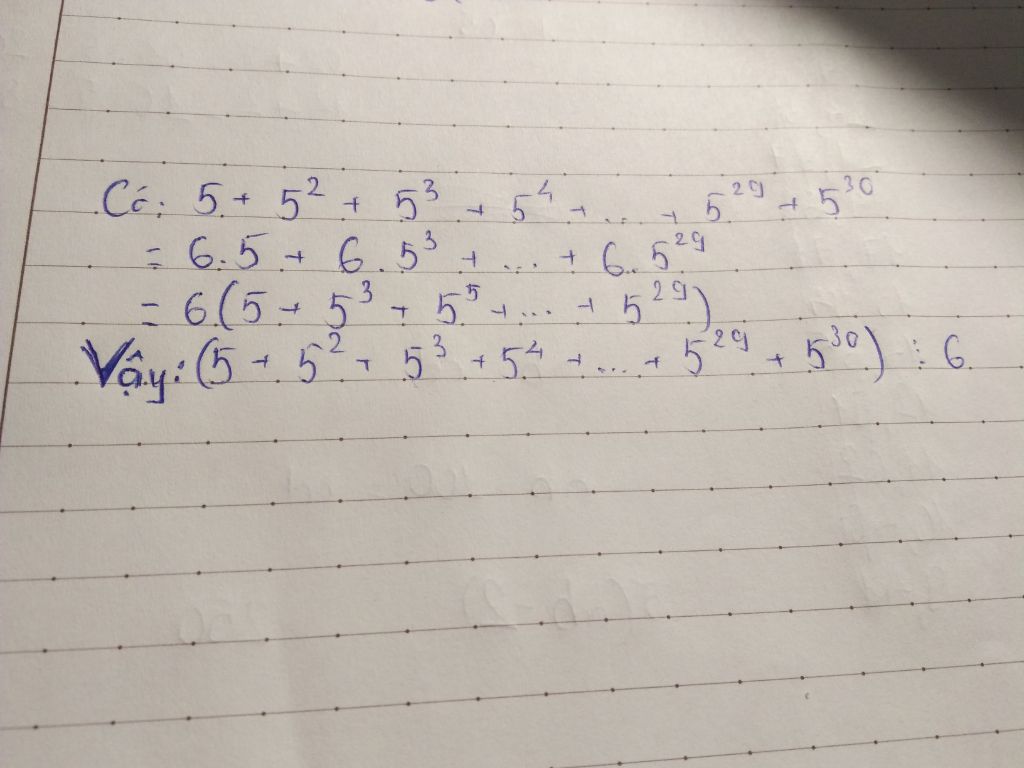 Có: 5 + 5² + 5³ + 5⁴ + ... + 5²⁹ + 5³⁰
= 6.5 + 6.5³ + ... + 6.5²⁹
= 6(5 + 5³ + 5⁵ + ... + 5²⁹)
Vậy: (5 + 5² + 5³ + 5⁴ + ... + 5²⁹ + 5³⁰) ⋮ 6